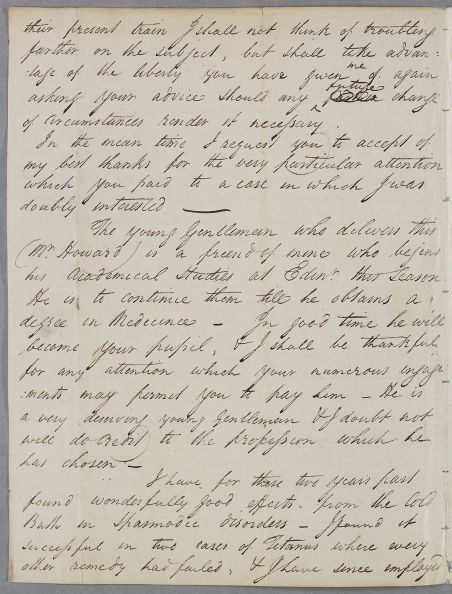 their present train I shall not think of troubling
farther on the subject, but shall take advan:
:tage of the liberty you have given me of again
asking your advice should any future change
of circumstances render it necessary.
In the mean time I request you to accept of
my best thanks for the very particular attention
which you paid to a case in which I was
doubly interested —
The young Gentleman who delivers this
(Mr. Howard) is a friend of mine who begins
his Academical Studies at Edinr. this Season
He is to continue them till he obtains a
degree in Medecence – In good time he will
become your pupil, & I shall be thankful
for any attention which your numerous engage
:ments may permit you to pay him – He is
a very deserving young Gentleman & I doubt not
will do credit to the profession which he
has chosen –
I have for these two years past
found wonderfully good effects from the Cold
Bath in Spasmodic disorders – I found it
successful in two cases of Tetanus where every
other remedy had failed, & I have since employed